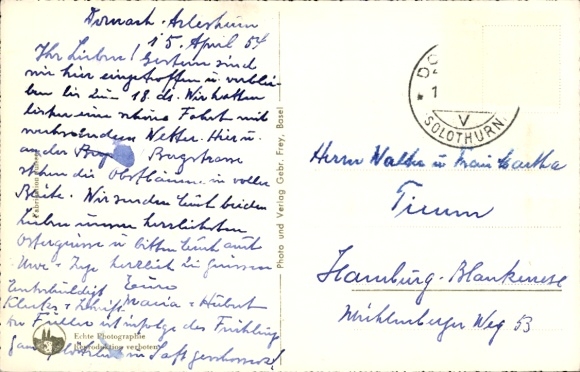 Dornach-Arlesheim
15. April 54
Ihr Lieben! Gestern sind
wir hier eingetroffen u. verblei-
ben bis zum 18. ds. Wir hatten
bisher eine schöne Fahrt mit
wechselndem Wetter. Hier u.
an der Berg Bergstrasse
stehen die Obstbäume in voller
Blüte. Wir senden Euch beiden
Lieben unsere herzlichsten
Ostergrüsse u. bitten Euch auch
Uwe + Inge herzlich zu grüssen
Eure
Maria + Hubert
Entschuldigt
Kleckse + Schrift
der Füller ist infolge des Frühlings
ganz in Saft geschossen!
Echte Photographie
Reproduktion verboten
Photo und Verlag Gebr. Frey, Basel
Fabrication Suisse
DO
1
V
SOLOTHURN
Herrn Walter u Frau Martha
Timm
Hamburg-Blankenese
Mühlenberger Weg 53